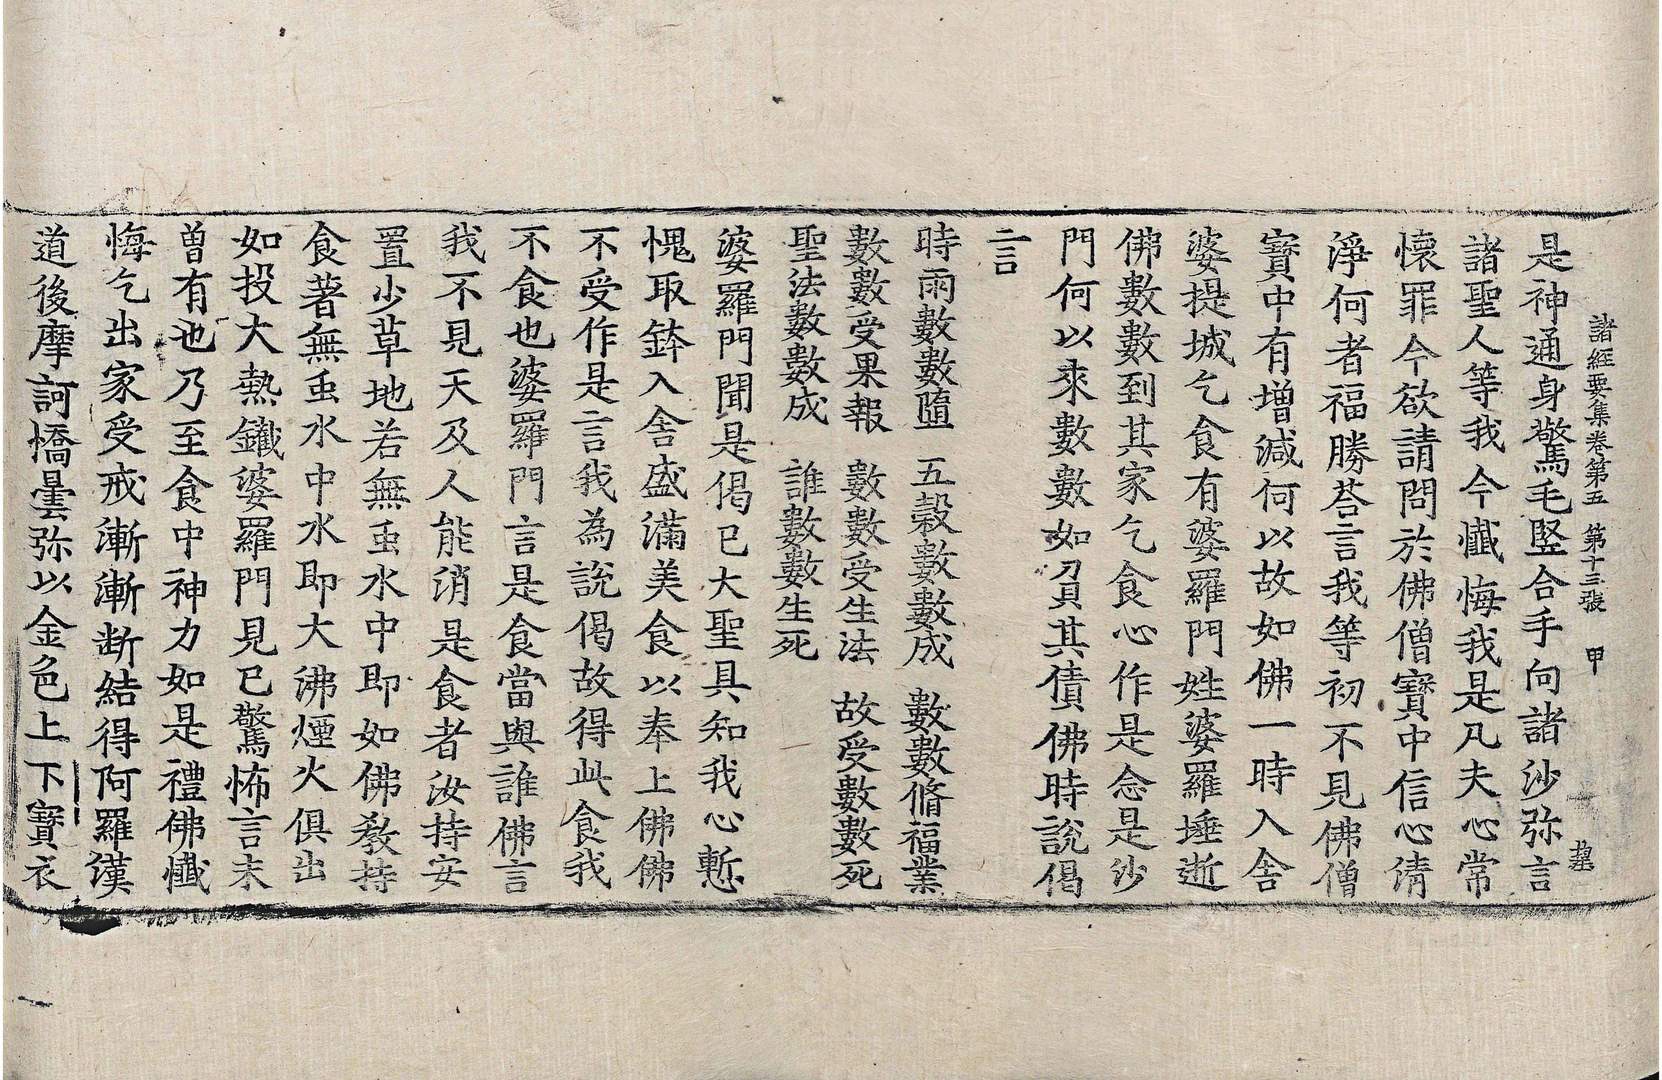 諸經要集卷第五 第十三張 甲
是神通身驚毛竪合手向諸沙弥言
諸聖人等我今懺悔我是凡夫心常
懷罪今欲請問於佛僧寶中信心清
淨何者福勝荅言我等初不見佛僧
寶中有增減何以故如佛一時入舍
婆提城乞食有婆羅門姓婆羅埵逝
佛數數到其家乞食心作是念是沙
門何以來數數如負其債佛時說偈
言
時雨數數隨 五穀數數成 數數脩福業
數數受果報 數數受生法 故受數數死
聖法數數成 誰數數生死
婆羅門聞是偈已大聖具知我心慙
愧取鉢入舍盛滿美食以奉上佛佛
不受作是言我為說偈故得此食我
不食也婆羅門言是食當與誰佛言
我不見天及人能消是食者汝持安
置少草地若無虫水中即如佛教持
食著無虫水中水即大沸煙火俱出
如投大熱鐵婆羅門見已驚怖言未
曾有也乃至食中神力如是禮佛懺
悔乞出家受戒漸漸断結得阿羅漢
道後摩訶憍曇弥以金色上下寶衣